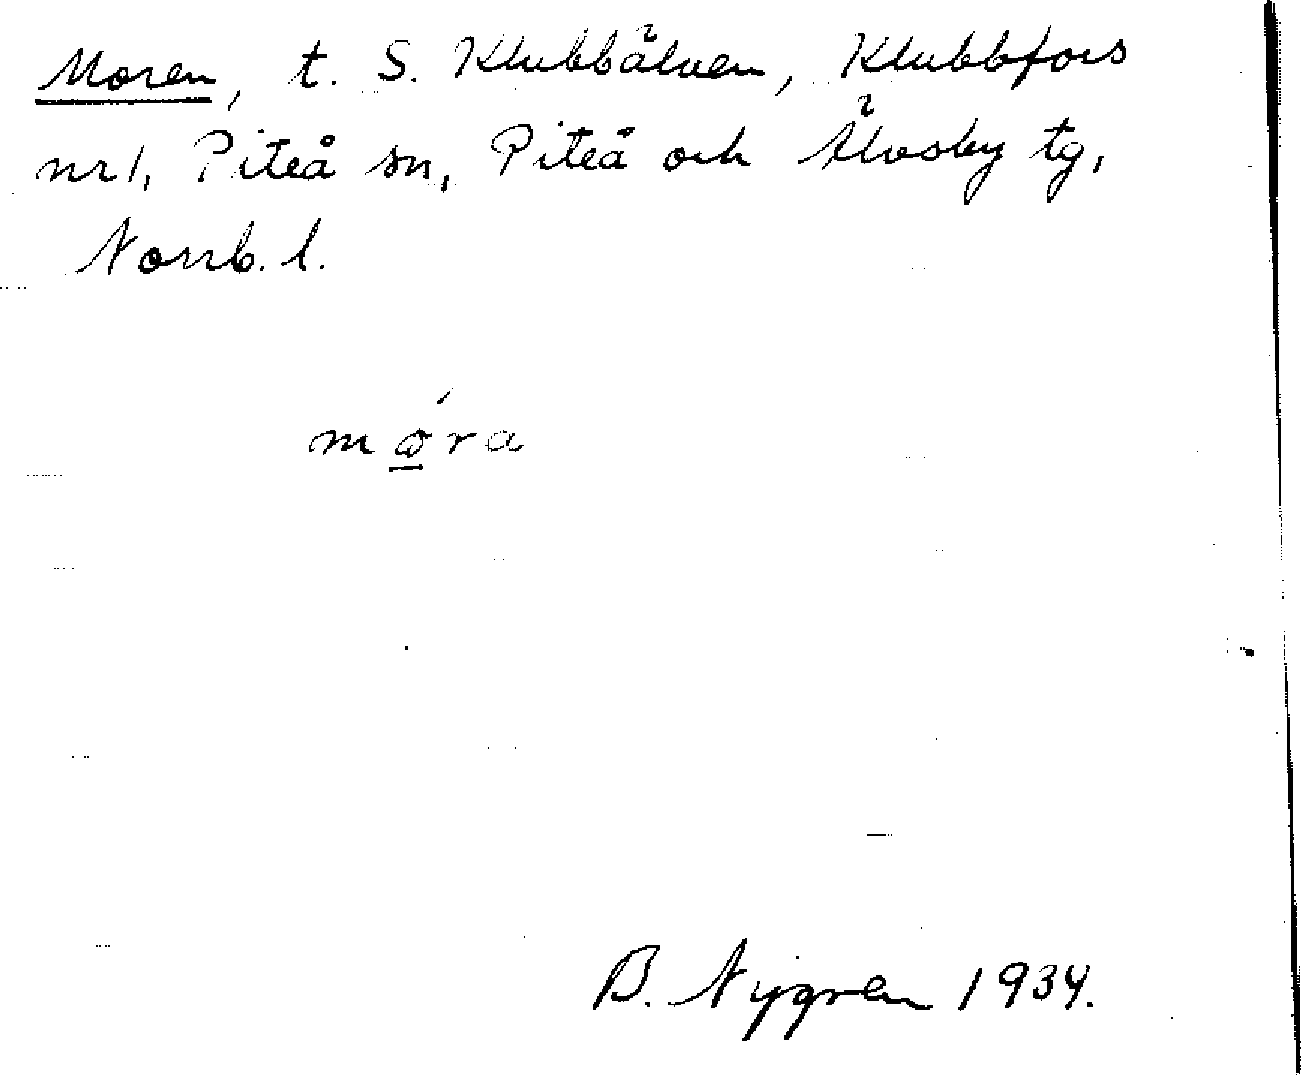 Moren, t. S. Klubbälven, Klubbfors
nr 1, Piteå sn, Piteå och Älvsby tg,
Norrb. l.
mǿra
B. Nygren 1934.